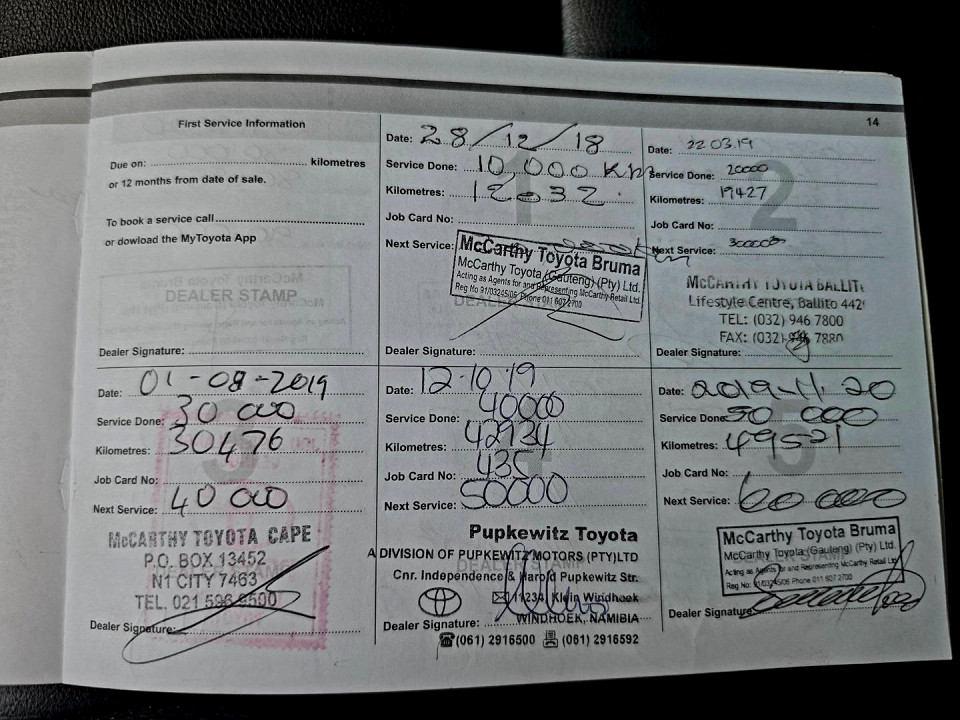 14
First Service Information
Due on: kilometres
or 12 months from date of sale.
To book a service call
or dowload the MyToyota App
DEALER STAMP
Dealer Signature:
1
Date: 28/12/18
Service Done: 10,000 Km
Kilometres:
Job Card No:
Next Service:
McCarthy Toyota Bruma
McCarthy Toyota (Gauteng) (Pty) Ltd.
Acting as Agents for and Representing McCarthy Retail Ltd.
Reg No 91/03245/06 Phone 011 607 2700
Dealer Signature:
2
Date: 22.03.19
Service Done: 20000
Kilometres: 19427
Job Card No:
Next Service: 300000
McCARTHY TOYOTA BALLITO
Lifestyle Centre, Ballito 442
TEL: (032) 946 7800
FAX: (032) 7880
Dealer Signature:
3
Date: 01-08-2019
Service Done: 30 000
Kilometres: 30476
Job Card No:
Next Service: 40 000
McCARTHY TOYOTA CAPE
P.O. BOX 13452
N1 CITY 7463
TEL. 021 596 9500
Dealer Signature:
Date: 12.10.19
Service Done: 40000
Kilometres: 42934
Job Card No: 435
Next Service: 50000
Pupkewitz Toyota
A DIVISION OF PUPKEWITZ MOTORS (PTY) LTD
Cnr. Independence & Harold Pupkewitz Str.
11234, Klein Windhoek
WINDHOEK, NAMIBIA
Dealer Signature:
(061) 2916500 (061) 2916592
5
Date: 2019-11-20
Service Done: 50 000
Kilometres: 49521
Job Card No:
Next Service: 60 000
McCarthy Toyota Bruma
McCarthy Toyota (Gauteng) (Pty) Ltd.
Acting as Agents for and Representing McCarthy Retail Ltd.
Reg No: 91/03245/06 Phone 011 607 2700
Dealer Signature